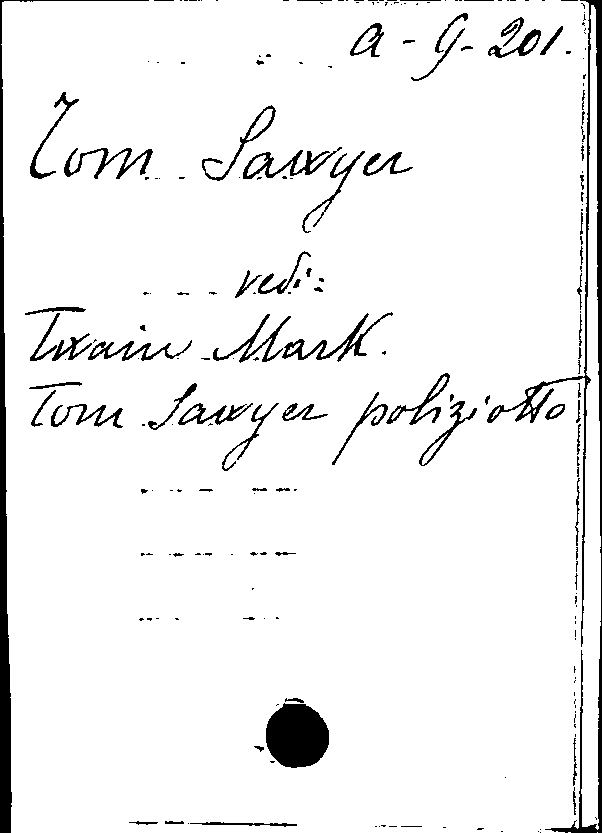 a - G - 201.
Tom Sawyer
vedi:
Twain Mark.
Tom Sawyer poliziotto